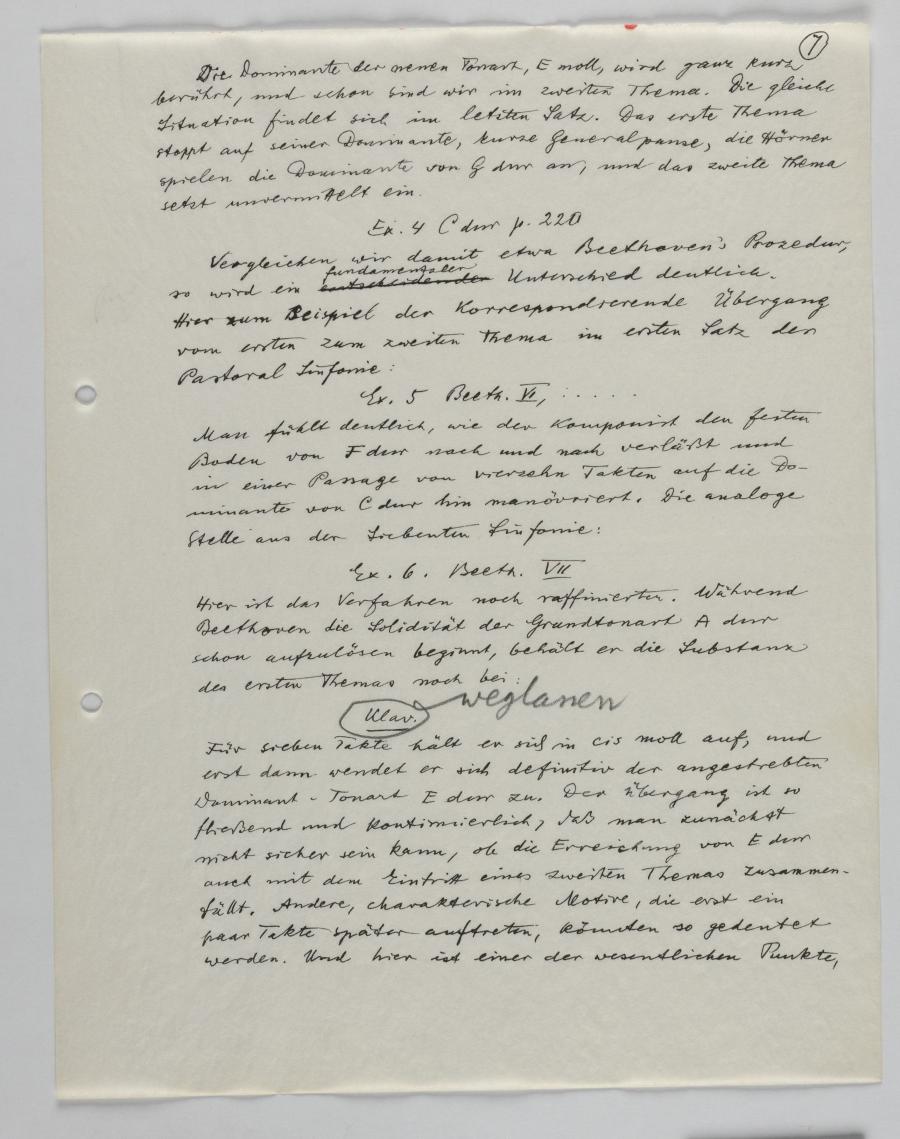 7
Die Dominante der neuen Tonart, E moll, wird ganz kurz
berührt, und schon sind wir im zweiten Thema. Die gleiche
Situation findet sich im letzten Satz. Das erste Thema
stoppt auf seiner Dominante, kurze Generalpause, die Hörner
spielen die Dominante von G dur an, und das zweite Thema
setzt unvermittelt ein.
Ex. 4 C dur p. 220
Vergleichen wir damit etwa Beethoven's Prozedur,
fundamentaler
so wird ein entscheidender Unterschied deutlich.
Hier zum Beispiel der korrespondierende Übergang
vom ersten zum zweiten Thema im ersten Satz der
Pastoral Sinfonie:
Ex. 5 Beeth. VI, : . . . . .
Man fühlt deutlich, wie der Komponist den festen
Boden von F dur nach und nach verläßt und
in einer Passage von vierzehn Takten auf die Do-
minante von C dur hin manövriert. Die analoge
Stelle aus der Siebenten Sinfonie:
Ex. 6. Beeth. VII
Hier ist das Verfahren noch raffinierter. Während
Beethoven die Solidität der Grundtonart A dur
schon aufzulösen beginnt, behält er die Substanz
des ersten Themas noch bei:
Klav. weglassen
Für sieben Takte hält er sich in cis moll auf, und
erst dann wendet er sich definitiv der angestrebten
Dominant-Tonart E dur zu. Der Übergang ist so
fließend und kontinuierlich, daß man zunächst
nicht sicher sein kann, ob die Erreichung von E dur
auch mit dem Eintritt eines zweiten Themas zusammen-
fällt. Andere, charakterische Motive, die erst ein
paar Takte später auftreten, könnten so gedeutet
werden. Und hier ist einer der wesentlichen Punkte,